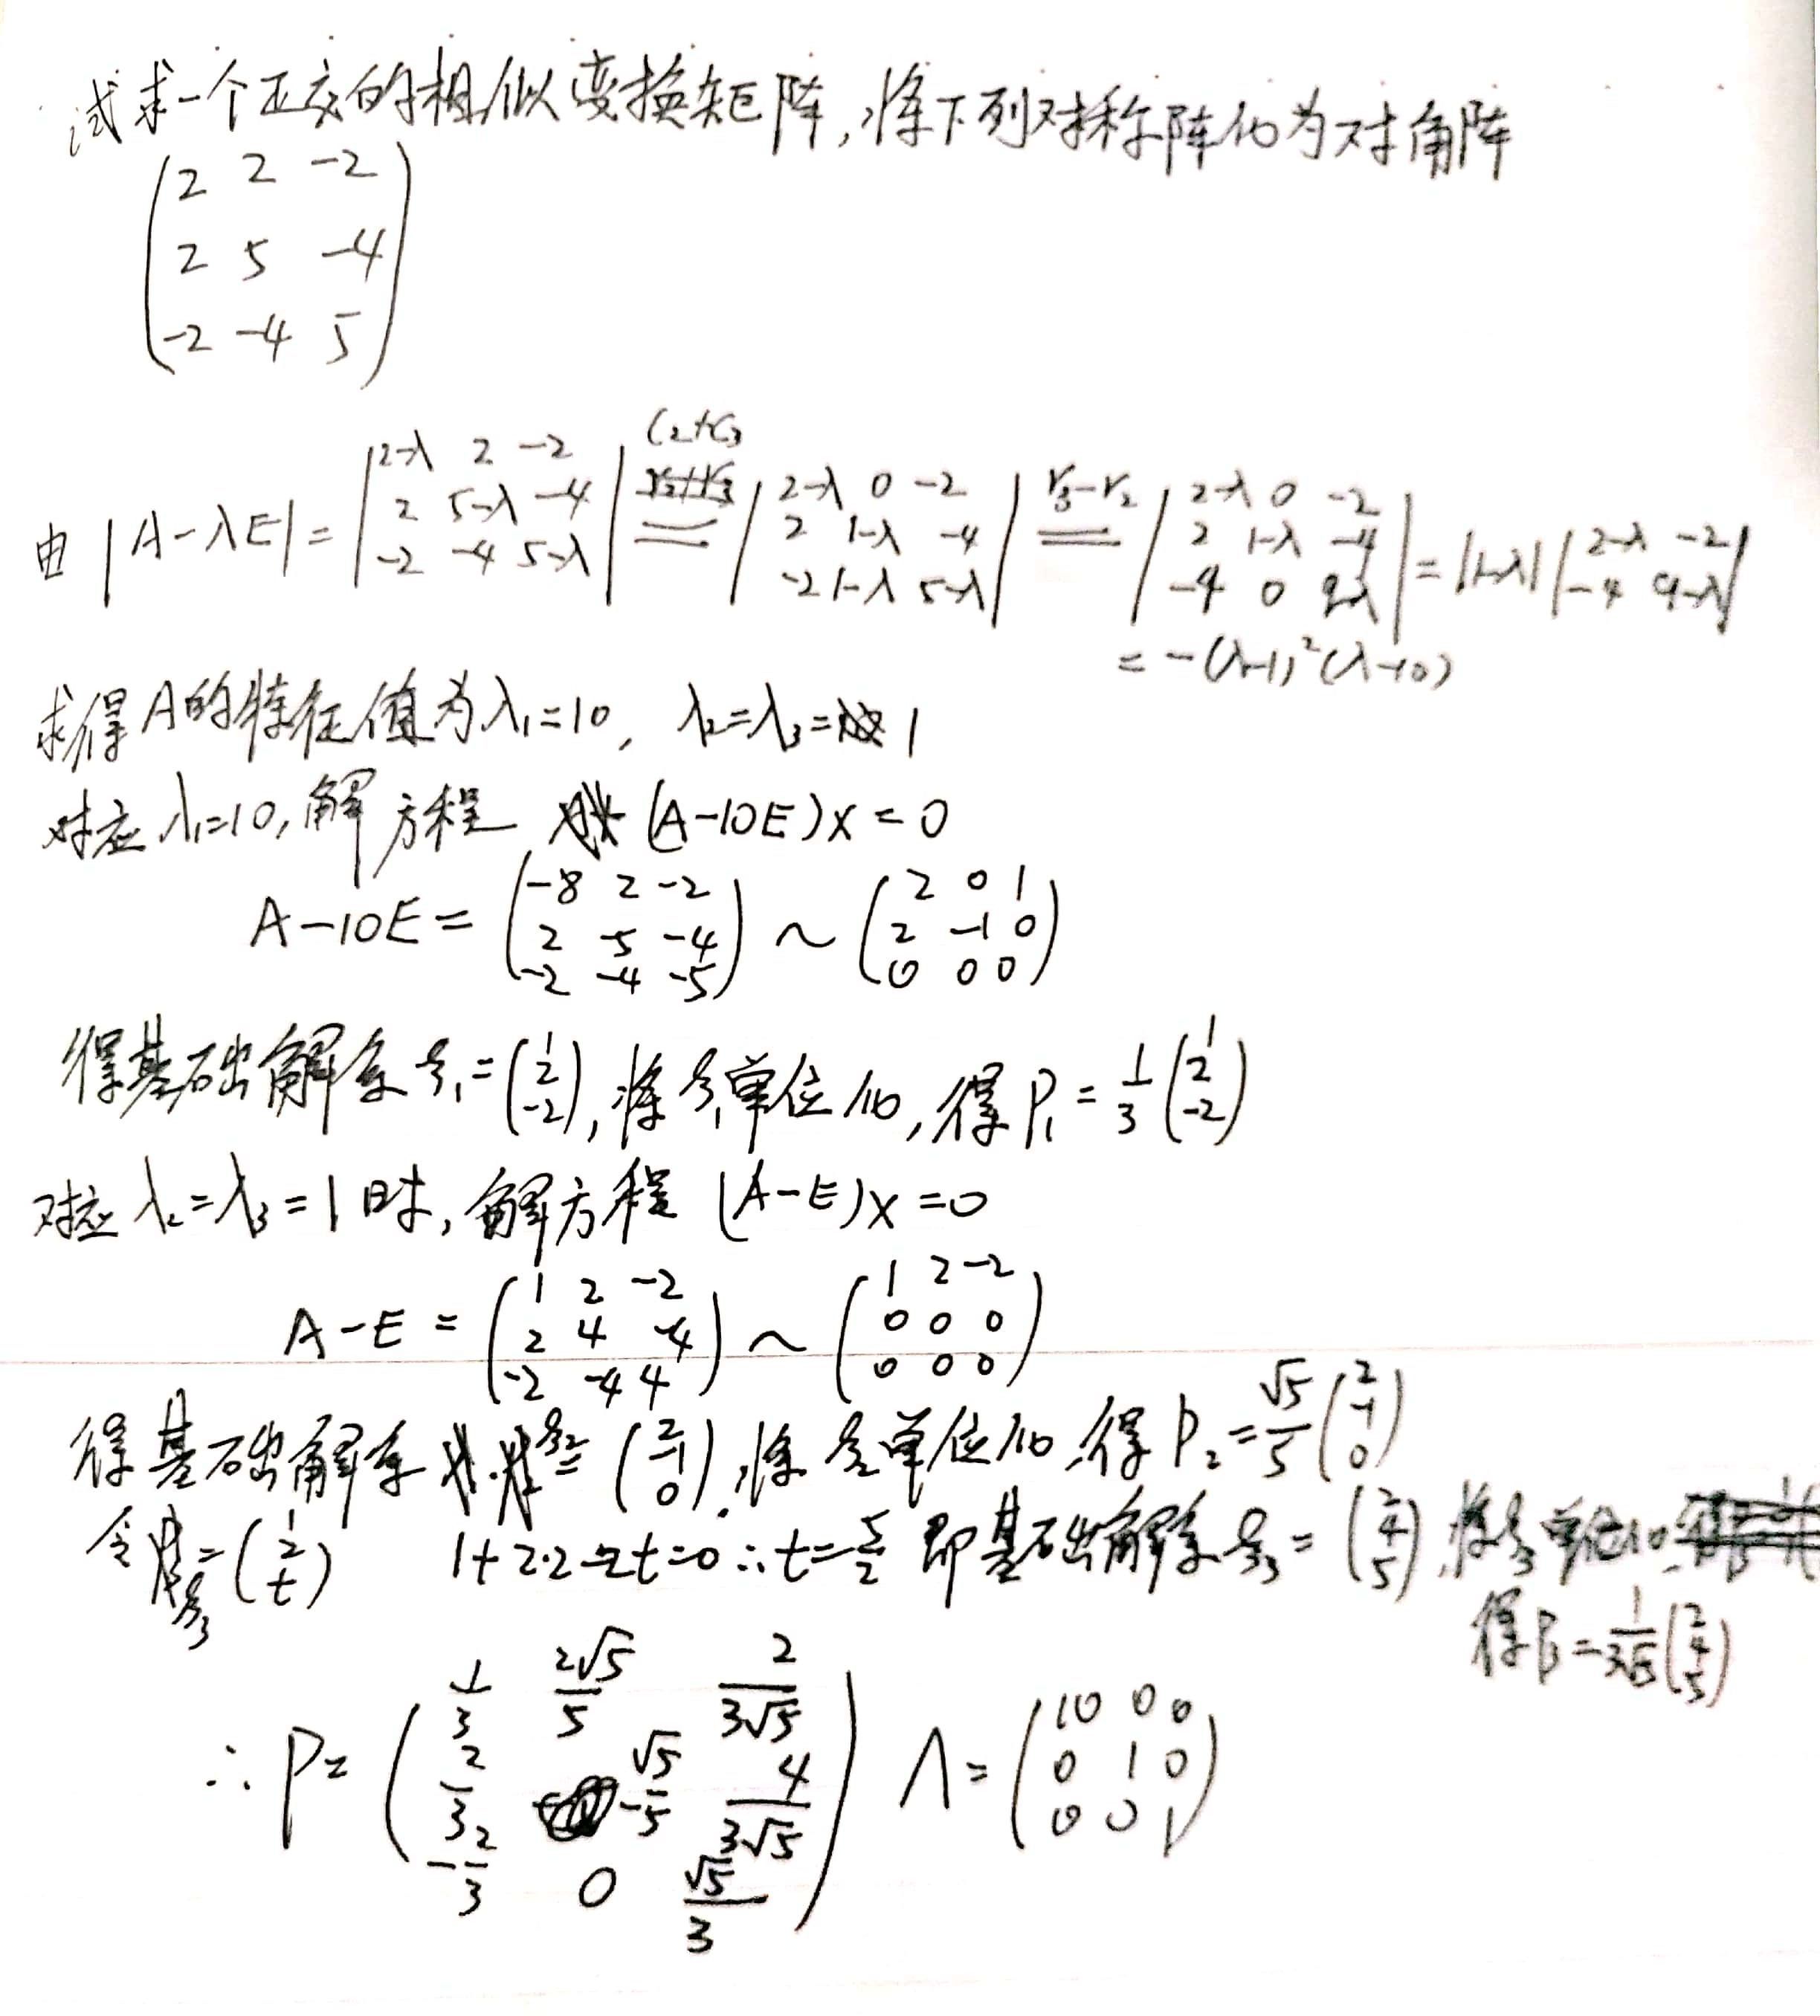 试求一个正交的相似变换矩阵,将下列对称阵化为对角阵
( 2 2 -2
2 5 -4
-2 -4 5 )
由 |A-λE| = | 2-λ 2 -2 ; 2 5-λ -4 ; -2 -4 5-λ | =(c₂+c₃)= | 2-λ 0 -2 ; 2 1-λ -4 ; -2 1-λ 5-λ | =(r₃-r₂)= | 2-λ 0 -2 ; 2 1-λ -4 ; -4 0 9-λ | = |1-λ| | 2-λ -2 ; -4 9-λ |
= -(λ-1)²(λ-10)
求得A的特征值为λ₁=10, λ₂=λ₃=1
对应λ₁=10,解方程 (A-10E)x=0
A-10E = ( -8 2 -2 ; 2 -5 -4 ; -2 -4 -5 ) ~ ( 2 0 1 ; 2 -1 0 ; 0 0 0 )
得基础解系ξ₁=( 1 ; 2 ; -2 ),将ξ₁单位化,得P₁=1/3( 1 ; 2 ; -2 )
对应λ₂=λ₃=1时,解方程 (A-E)x=0
A-E = ( 1 2 -2 ; 2 4 -4 ; -2 -4 4 ) ~ ( 1 2 -2 ; 0 0 0 ; 0 0 0 )
得基础解系 ξ₂=( 2 ; -1 ; 0 ),将ξ₂单位化,得P₂=√5/5( 2 ; -1 ; 0 )
令ξ₃=( 1 ; 2 ; t ) 1+2·2-2t=0 ∴t=5/2 即基础解系ξ₃=( 2 ; 4 ; 5 ),将ξ₃单位化,
得P₃=1/3√5( 2 ; 4 ; 5 )
∴P=( 1/3 2√5/5 2/3√5 ; 2/3 -√5/5 4/3√5 ; -2/3 0 √5/3 ) Λ=( 10 0 0 ; 0 1 0 ; 0 0 1 )